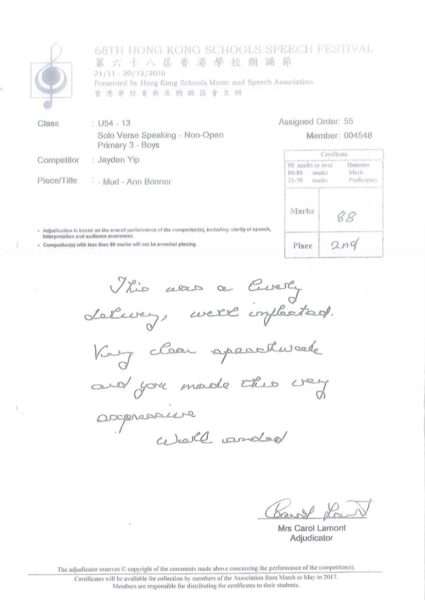 68TH HONG KONG SCHOOLS SPEECH FESTIVAL
第六十八屆香港學校朗誦節
21/11 - 20/12/2016
Presented by Hong Kong Schools Music and Speech Association
香港學校音樂及朗誦協會主辦
Class : U54 - 13
Solo Verse Speaking - Non-Open
Primary 3 - Boys
Assigned Order: 55
Member: 004548
Competitor : Jayden Yip
Piece/Title : - Mud - Ann Bonner
Certificate
90 marks or over Honours
80-89 marks Merit
75-79 marks Proficiency
Marks 88
Place 2nd
• Adjudication is based on the overall performance of the competitor(s), including: clarity of speech, interpretation and audience awareness.
• Competitor(s) with less than 80 marks will not be awarded placing.
This was a lively
delivery, well inflected.
Very clear speechwork
and you made this very
expressive
Well ended
Carol Lamont
Mrs Carol Lamont
Adjudicator
The adjudicator reserves © copyright of the comments made above concerning the performance of the competitor(s).
Certificates will be available for collection by members of the Association from March to May in 2017.
Members are responsible for distributing the certificates to their students.